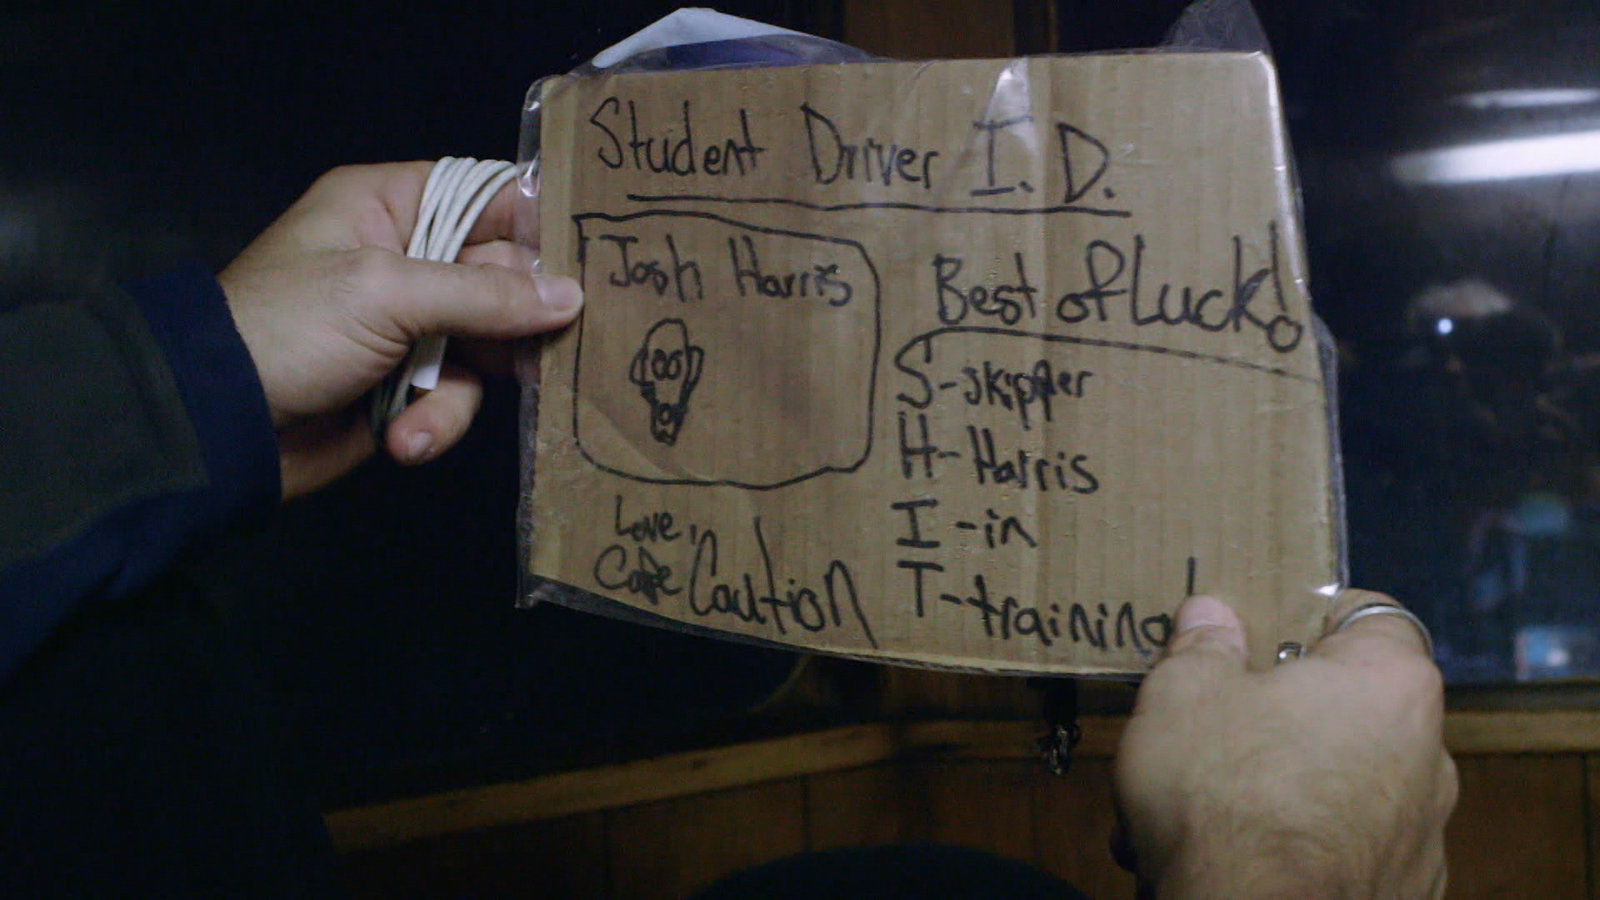 Student Driver I.D.
Josh Harris
Best of Luck!
S-skipper
H-Harris
I-in
T-training!
Love,
Cape Caution